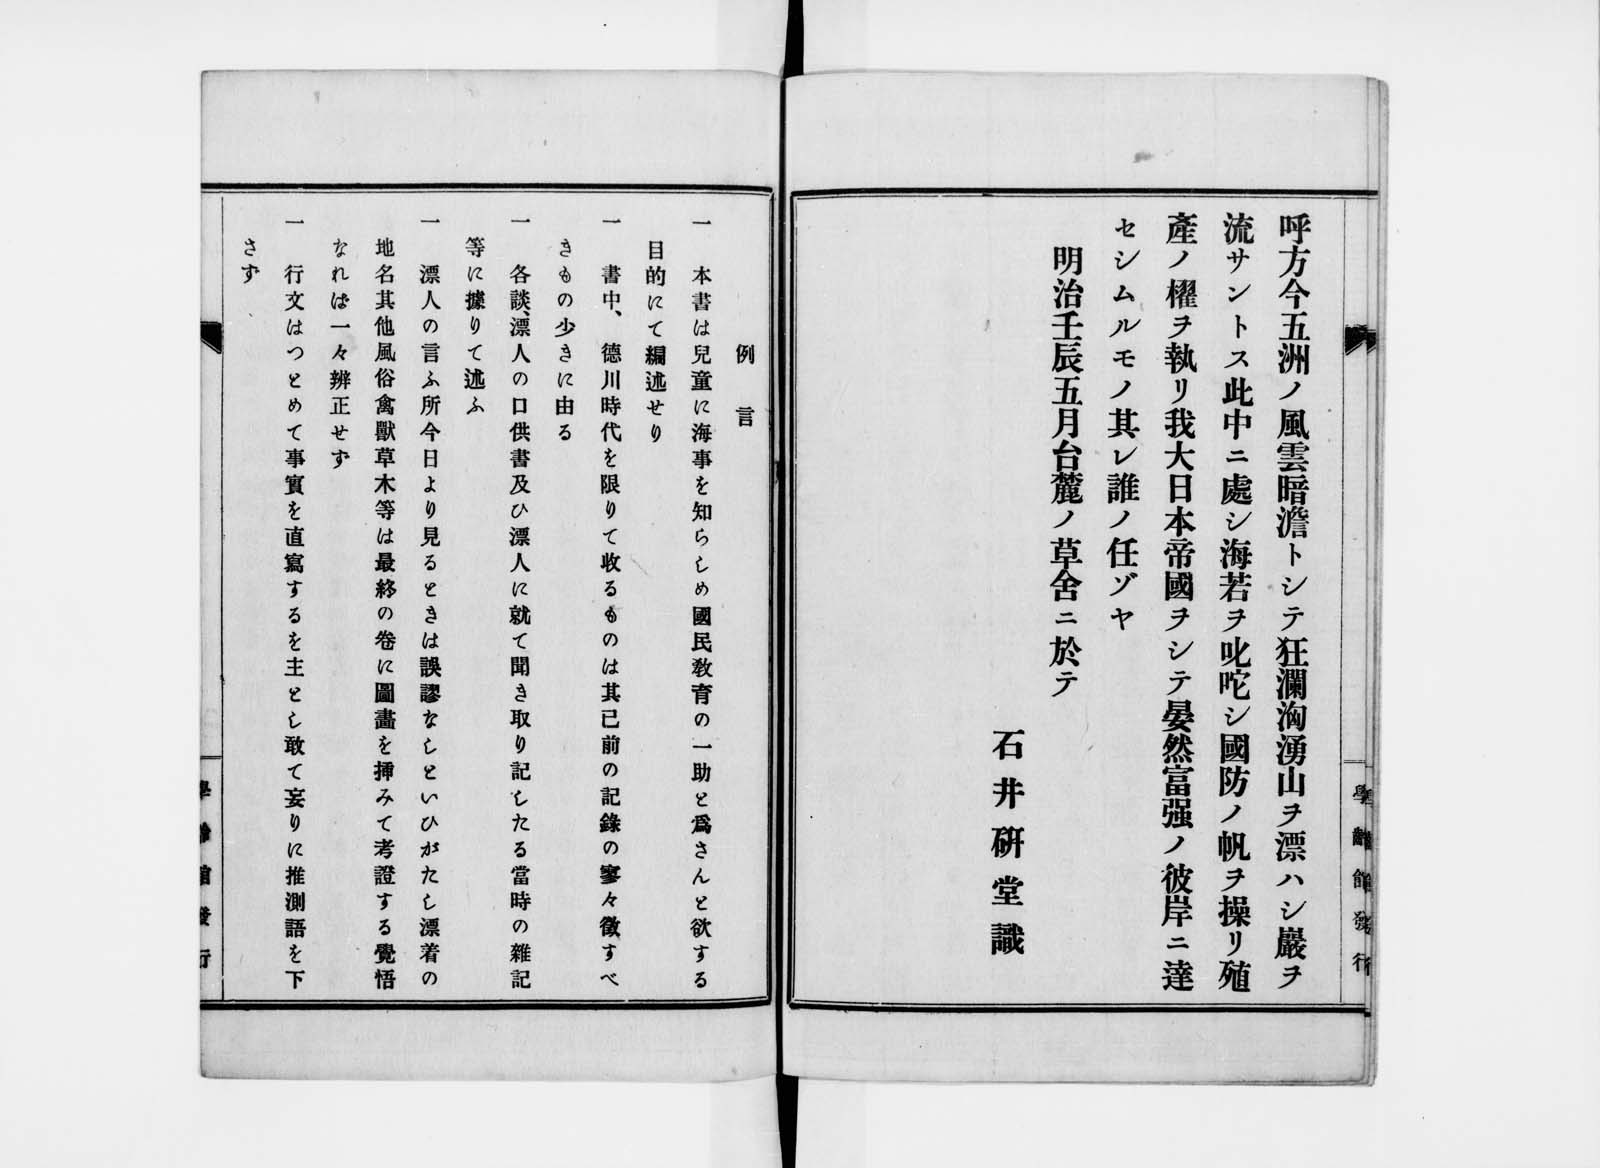 呼方今五洲ノ風雲暗澹トシテ狂瀾洶湧山ヲ漂ハシ巖ヲ
流サントス此中ニ處シ海若ヲ叱咤シ國防ノ帆ヲ操リ殖
產ノ櫂ヲ執リ我大日本帝國ヲシテ晏然富强ノ彼岸ニ達
セシムルモノ其レ誰ノ任ゾヤ
明治壬辰五月台麓ノ草舍ニ於テ
石井硏堂識
學齡館發行
例言
一 本書は兒童に海事を知らしめ國民敎育の一助と爲さんと欲する
目的にて編述せり
一 書中、德川時代を限りて收るものは其已前の記錄の寥々徵すべ
きもの少きに由る
一 各談、漂人の口供書及ひ漂人に就て聞き取り記したる當時の雜記
等に據りて述ふ
一 漂人の言ふ所今日より見るときは誤謬なしといひがたし漂着の
地名其他風俗禽獸草木等は最終の卷に圖畵を揷みて考證する覺悟
なれば一々辨正せず
一 行文はつとめて事實を直寫するを主とし敢て妄りに推測語を下
さず
學齡館發行